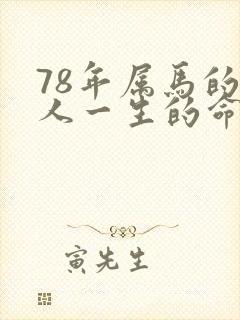 78年属马的
人一生的命
寅先生